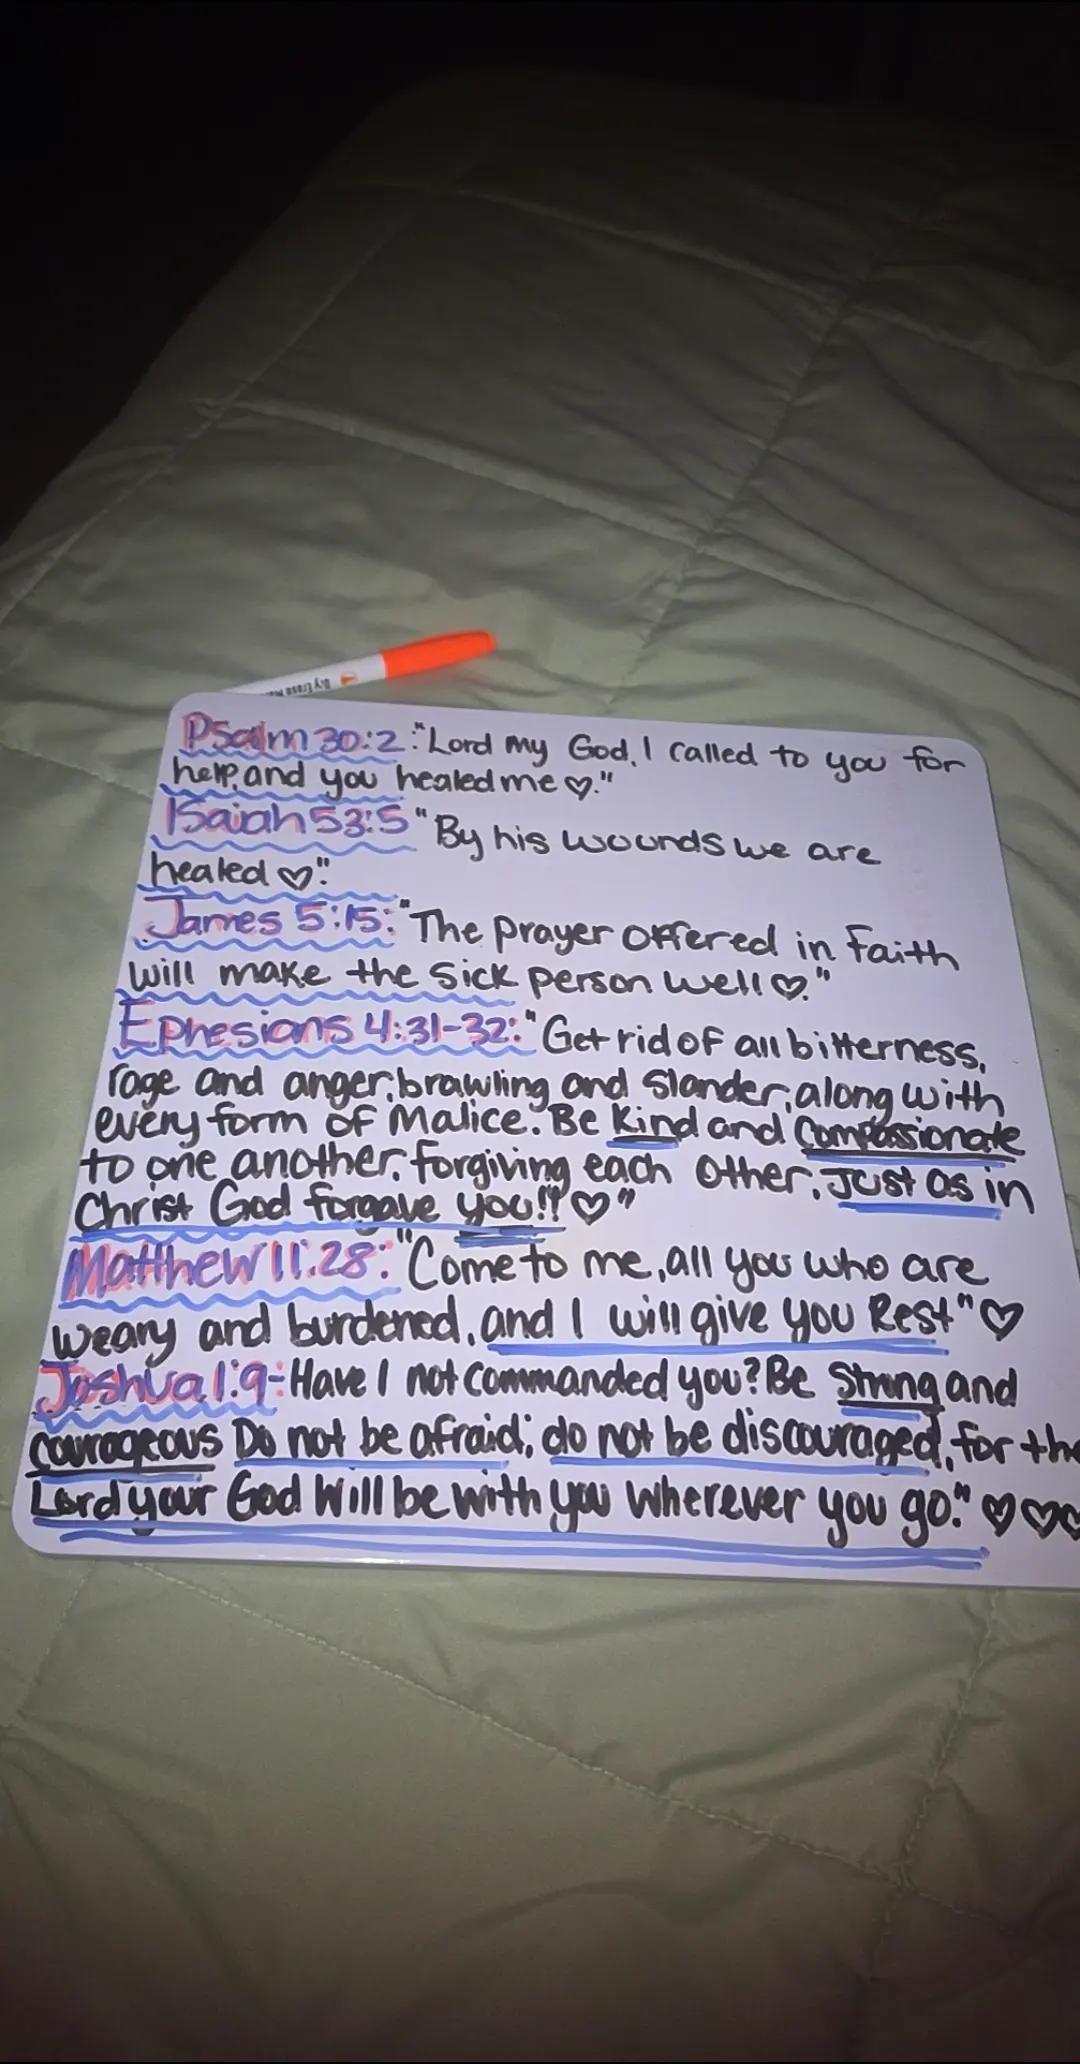 Dry Erase Ma
Psalm 30:2: "Lord my God, I called to you for
help, and you healed me ♡."
Isaiah 53:5 "By his wounds we are
healed ♡."
James 5:15: "The prayer offered in faith
will make the sick person well ♡."
Ephesians 4:31-32: "Get rid of all bitterness,
rage and anger, brawling and slander, along with
every form of Malice. Be Kind and Compassionate
to one another, forgiving each other, Just as in
Christ God forgave you!! ♡"
Matthew 11:28: "Come to me, all you who are
weary and burdened, and I will give you Rest" ♡
Joshua 1:9: Have I not commanded you? Be Strong and
courageous Do not be afraid; do not be discouraged, for the
Lord your God Will be with you wherever you go." ♡♡♡